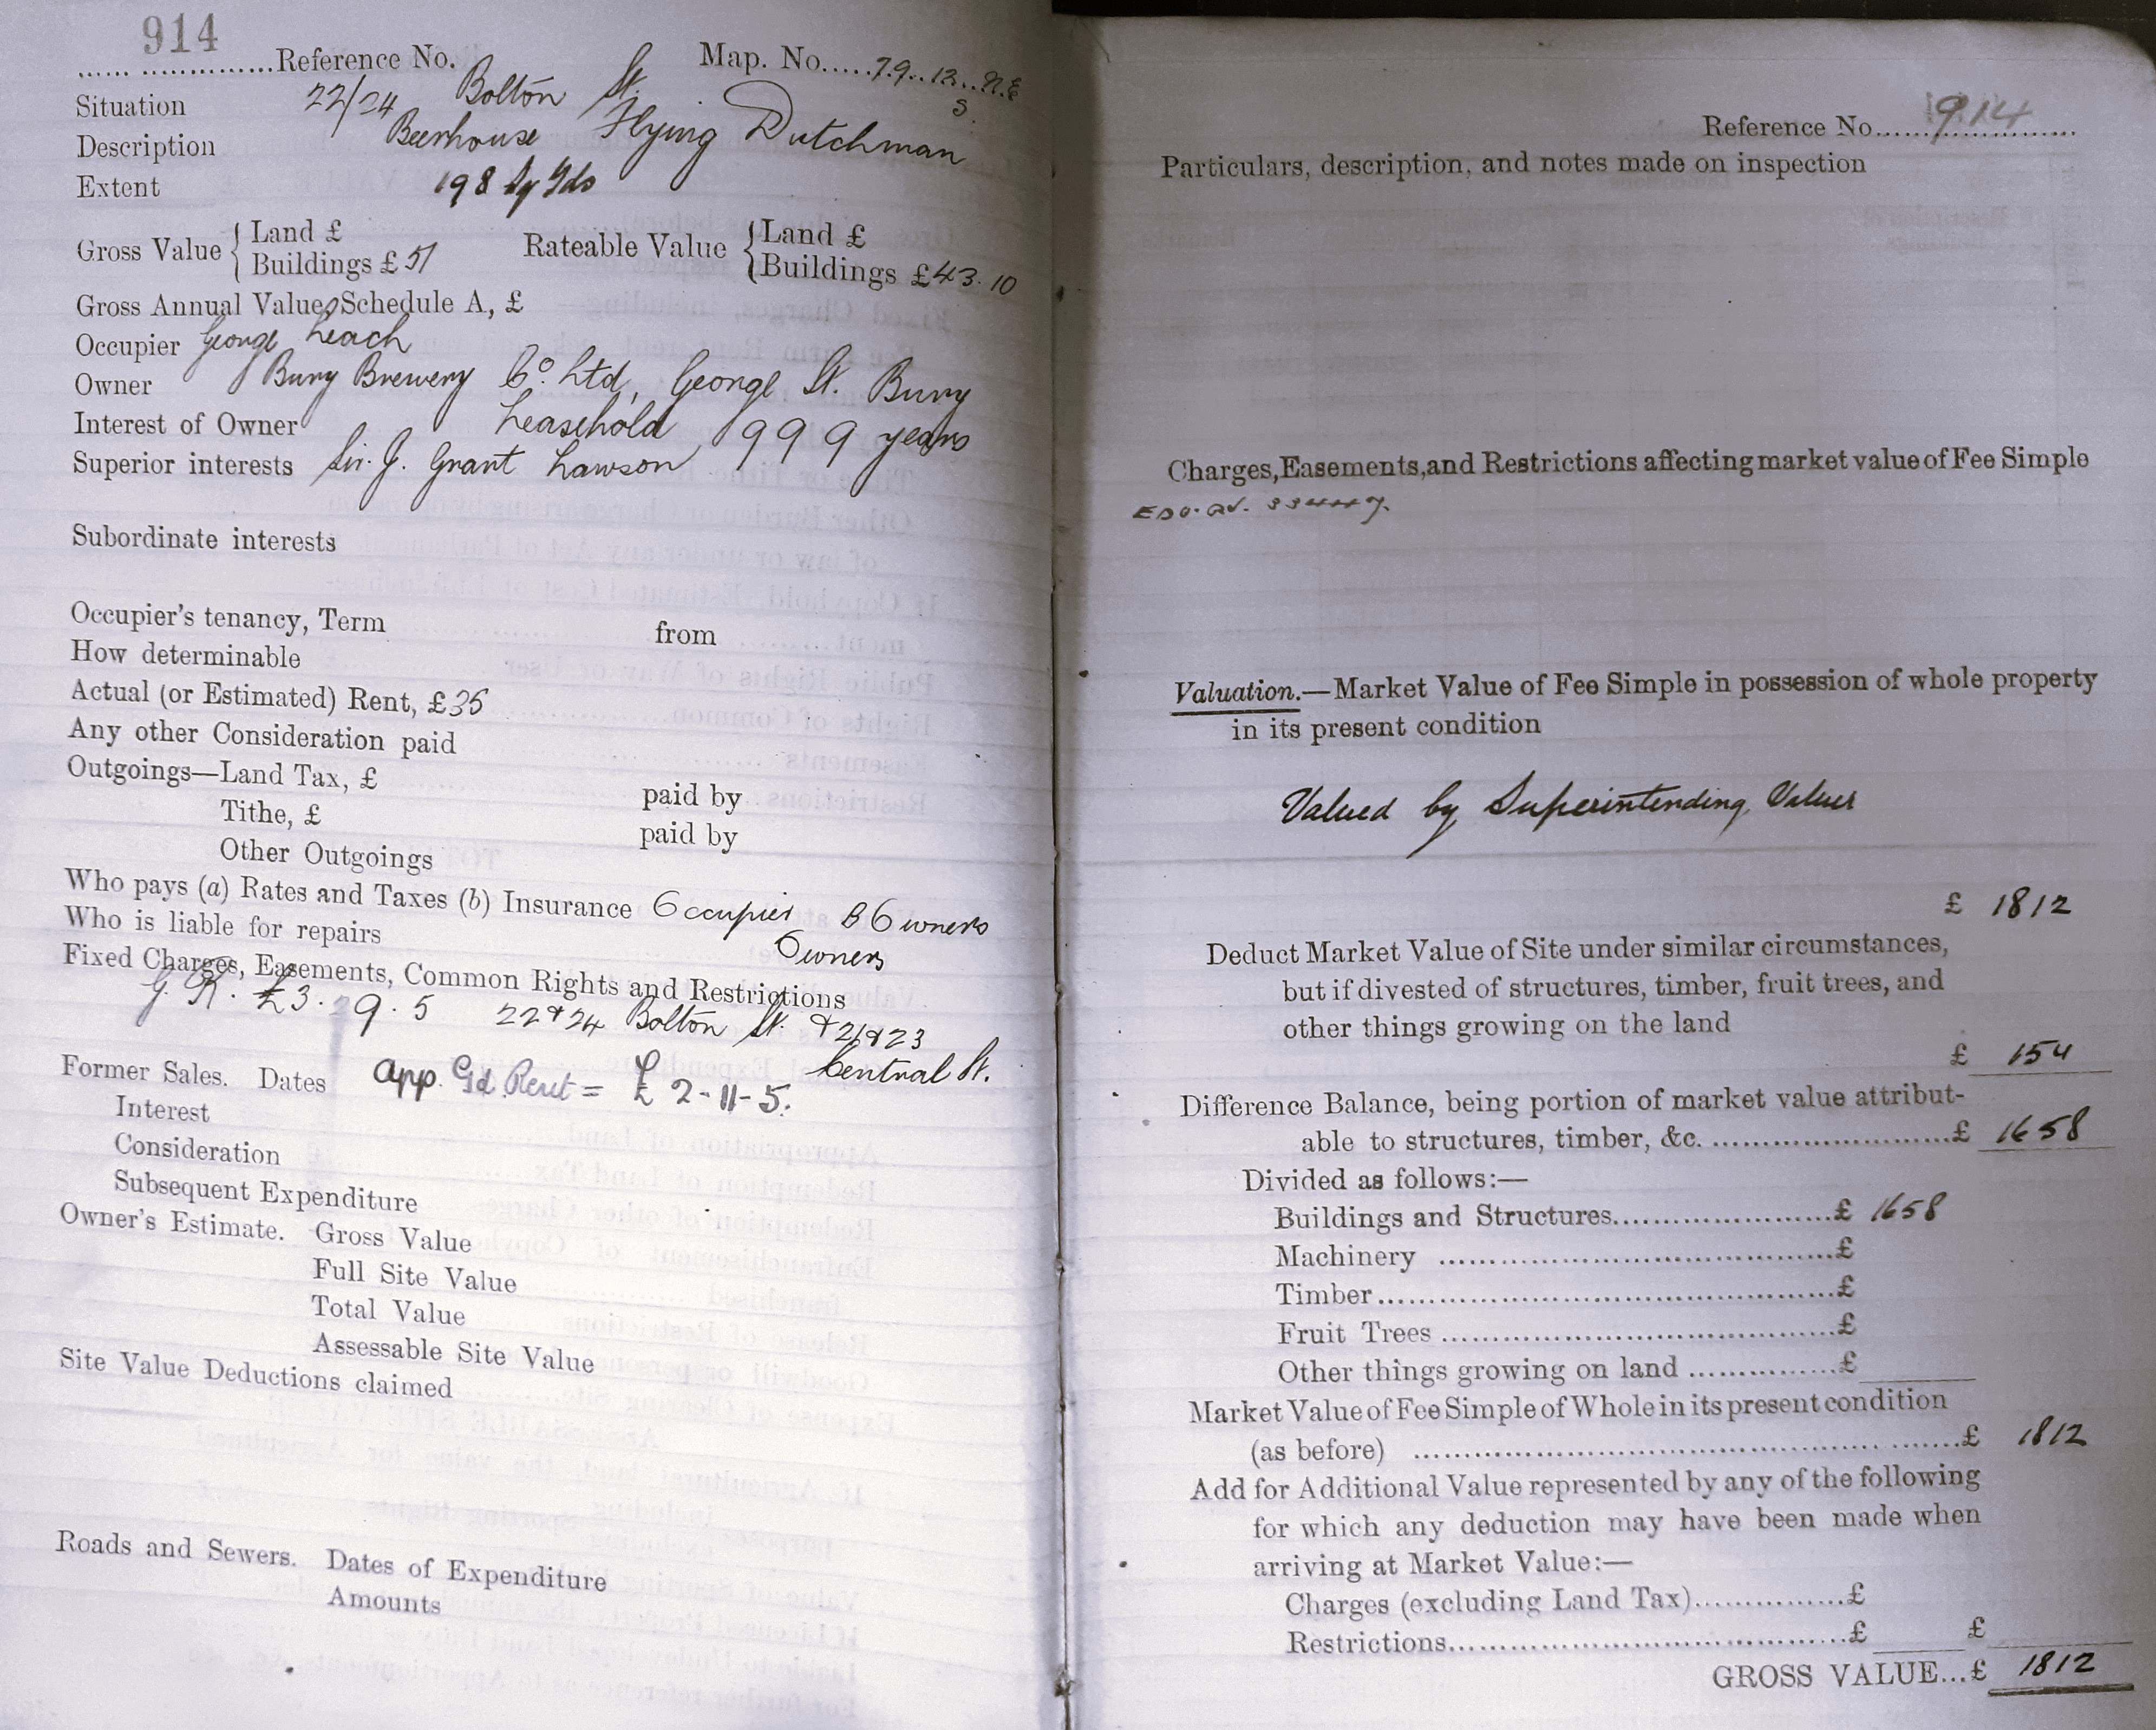 914
Reference No. Map. No. 79. 12. N.E
S.
Situation 22/24 Bolton St.
Description Beerhouse Flying Dutchman
Extent 198 Sq Yds
Gross Value { Land £ Rateable Value { Land £
Buildings £ 51 Buildings £ 43. 10
Gross Annual Value, Schedule A, £
Occupier George Leach
Owner Bury Brewery Co. Ltd, George St. Bury
Interest of Owner Leasehold 999 years
Superior interests Sir. J. Grant Lawson
Subordinate interests
Occupier's tenancy, Term from
How determinable
Actual (or Estimated) Rent, £ 35
Any other Consideration paid
Outgoings—Land Tax, £ paid by
Tithe, £ paid by
Other Outgoings
Who pays (a) Rates and Taxes (b) Insurance Occupier B Owners
Who is liable for repairs Owners
Fixed Charges, Easements, Common Rights and Restrictions
G. R. £3. 9. 5 22 & 24 Bolton St. & 21 & 23
Central St.
Former Sales. Dates App. Gd. Rent = £ 2-11-5.
Interest
Consideration
Subsequent Expenditure
Owner's Estimate. Gross Value
Full Site Value
Total Value
Assessable Site Value
Site Value Deductions claimed
Roads and Sewers. Dates of Expenditure
Amounts
Reference No. 914
Particulars, description, and notes made on inspection
Charges, Easements, and Restrictions affecting market value of Fee Simple
Valuation.—Market Value of Fee Simple in possession of whole property
in its present condition
Valued by Superintending Valuer
£ 1812
Deduct Market Value of Site under similar circumstances,
but if divested of structures, timber, fruit trees, and
other things growing on the land
£ 154
Difference Balance, being portion of market value attribut-
able to structures, timber, &c. £ 1658
Divided as follows:—
Buildings and Structures £ 1658
Machinery £
Timber £
Fruit Trees £
Other things growing on land £
Market Value of Fee Simple of Whole in its present condition
(as before) £ 1812
Add for Additional Value represented by any of the following
for which any deduction may have been made when
arriving at Market Value:—
Charges (excluding Land Tax) £
Restrictions £ £
GROSS VALUE...£ 1812